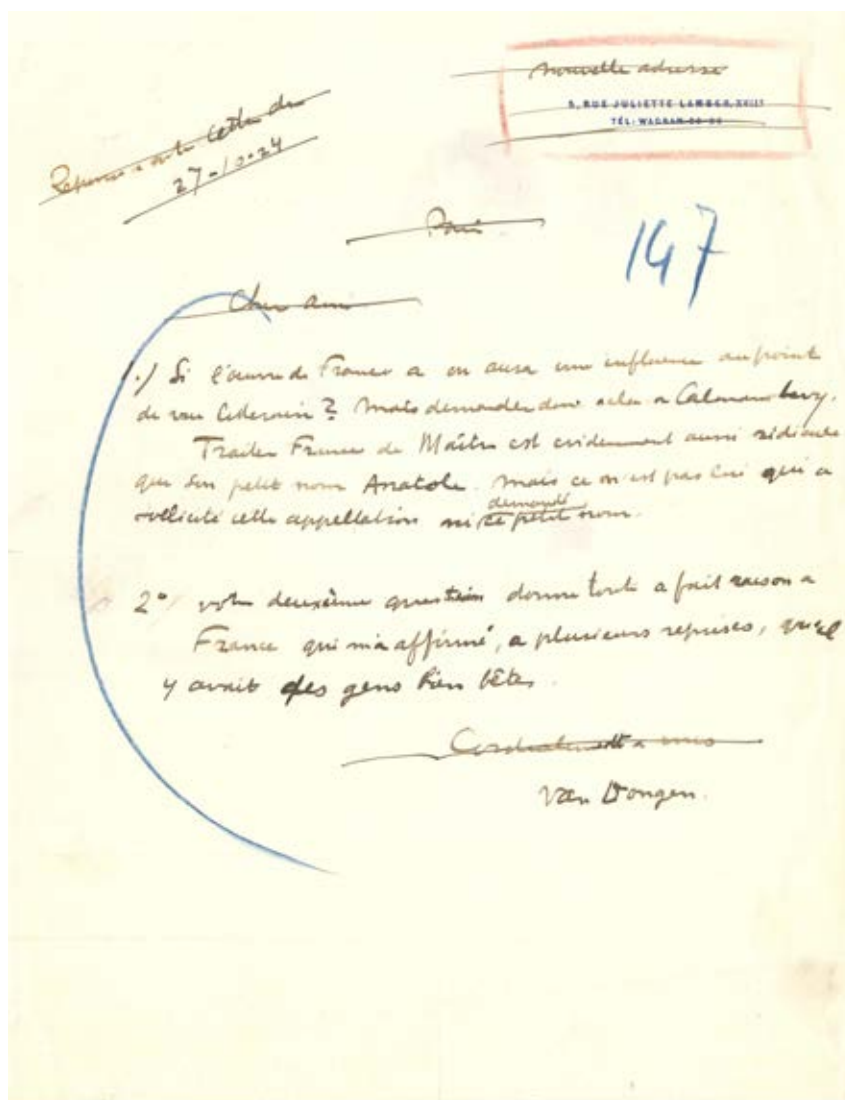 nouvelle adresse
5, RUE JULIETTE LAMBER, XVIIᵉ
TÉL: WAGRAM
Réponse a votre lettre du
27-10-24
Paris
147
Cher ami
1.) Si l'œuvre de France a ou aura une influence au point
de vue litteraire ? Mais demandez donc cela a Calmann Levy.
Traiter France de Maître est evidemment aussi ridicule
que son petit nom Anatole. Mais ce n'est pas lui qui a
sollicité cette appellation ni demandé ce petit nom.
2°/ votre deuxième question donne tout a fait raison a
France qui m'a affirmé, a plusieurs reprises, qu'il
y avait des gens bien bêtes.
Cordialement a vous
Van Dongen.